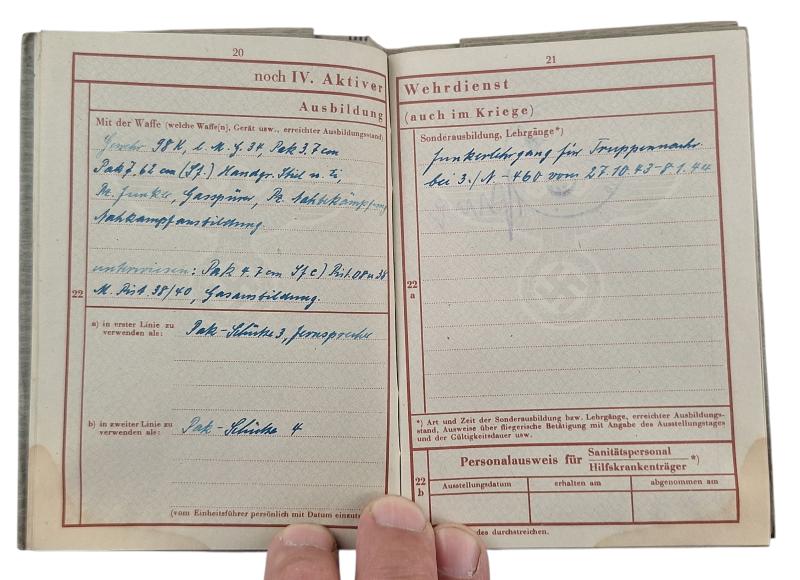 20
noch IV. Aktiver
Ausbildung
Mit der Waffe (welche Waffe[n], Gerät usw., erreichter Ausbildungsstand)
Gewehr 98 K, l. M. G. 34, Pak 3.7 cm
Pak 7.62 cm (Sf.) Handgr. Stiel u. Ei,
Pz. Funker, Gasspürer, Pz. Nahbekämpfung
Nahkampfausbildung.
unterwiesen: Pak 4.7 cm Sfl) Pist. 08 u. 38
M. Pist. 38/40, Gasausbildung.
22
a) in erster Linie zu
verwenden als:
Pak-Schütze 3, Fernsprecher
b) in zweiter Linie zu
verwenden als:
Pak-Schütze 4
(vom Einheitsführer persönlich mit Datum einzutr
21
Wehrdienst
(auch im Kriege)
Sonderausbildung, Lehrgänge*)
Funkerlehrgang für Truppennachr.
bei 3./N-460 vom 27.10.43-8.1.44
22
a
*) Art und Zeit der Sonderausbildung bzw. Lehrgänge, erreichter Ausbildungs-
stand, Ausweise über fliegerische Betätigung mit Angabe des Ausstellungstages
und der Gültigkeitsdauer usw.
Personalausweis für Sanitätspersonal
Hilfskrankenträger *)
22
b
Ausstellungsdatum erhalten am abgenommen am
des durchstreichen.